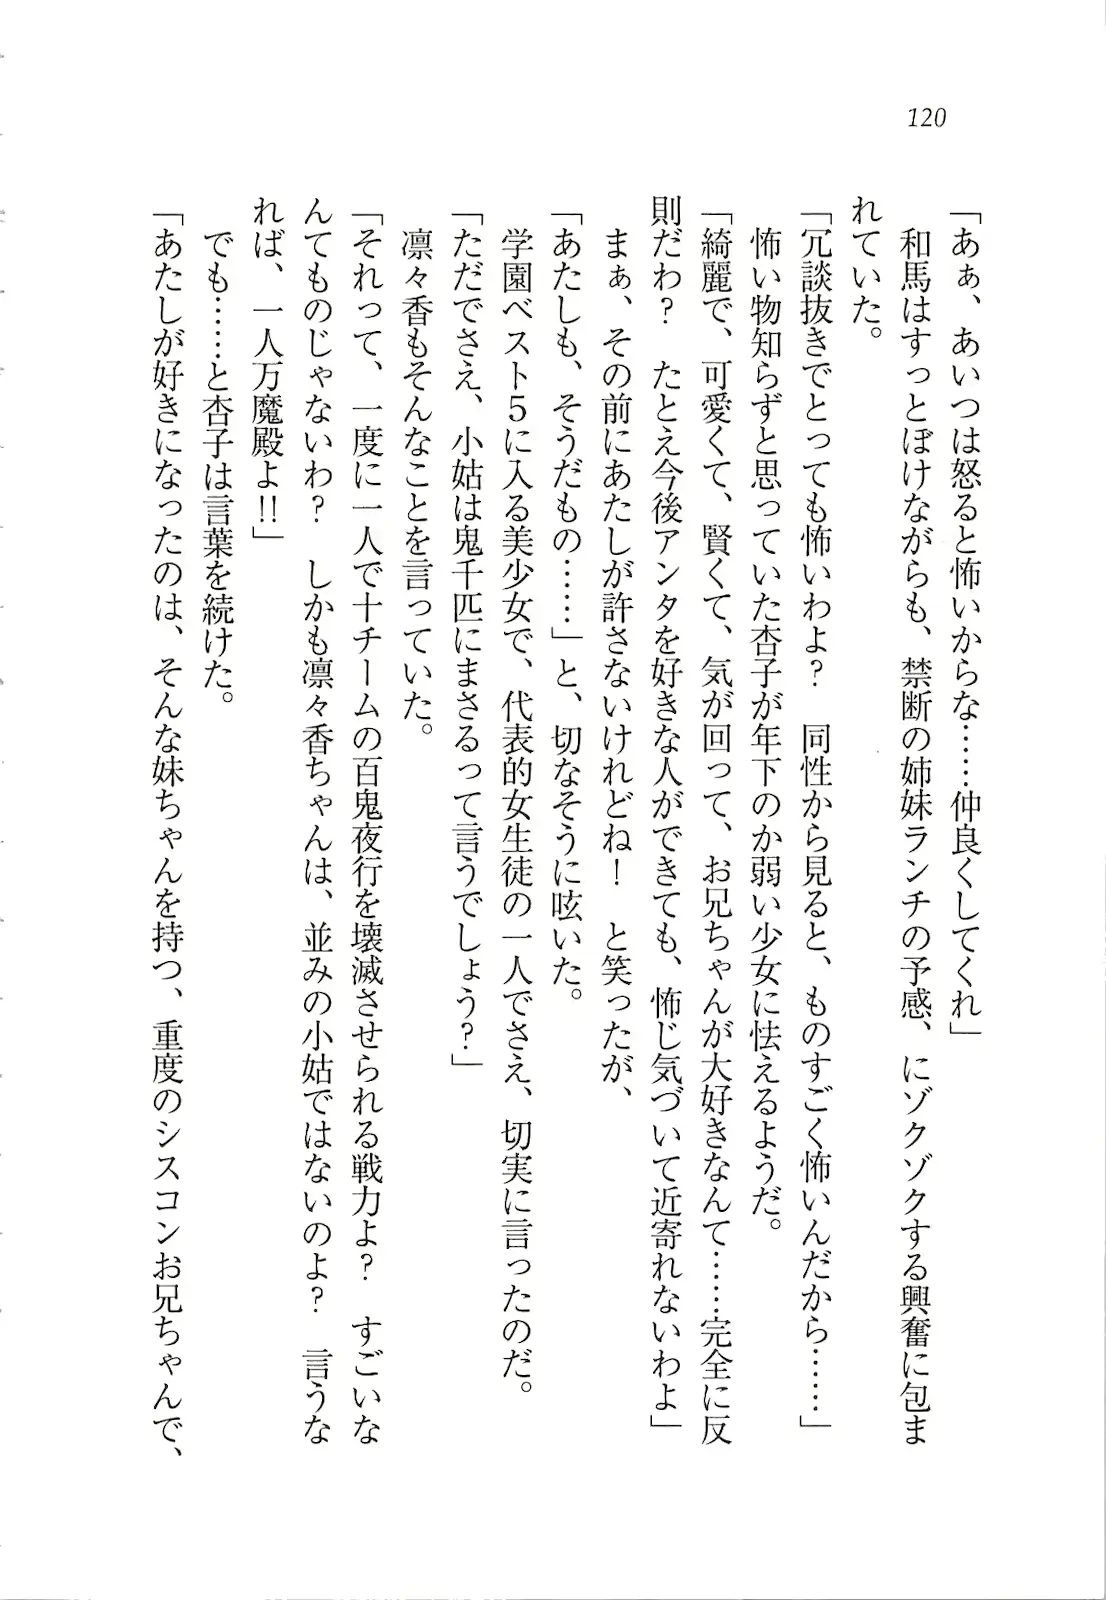 120
「あぁ、あいつは怒ると怖いからな……仲良くしてくれ」
和馬はすっとぼけながらも、禁断の姉妹ランチの予感、にゾクゾクする興奮に包ま
れていた。
「冗談抜きでとっても怖いわよ？　同性から見ると、ものすごく怖いんだから……」
怖い物知らずと思っていた杏子が年下のか弱い少女に怯えるようだ。
「綺麗で、可愛くて、賢くて、気が回って、お兄ちゃんが大好きなんて……完全に反
則だわ？　たとえ今後アンタを好きな人ができても、怖じ気づいて近寄れないわよ」
まぁ、その前にあたしが許さないけれどね！　と笑ったが、
「あたしも、そうだもの……」と、切なそうに呟いた。
学園ベスト５に入る美少女で、代表的女生徒の一人でさえ、切実に言ったのだ。
「ただでさえ、小姑は鬼千匹にまさるって言うでしょう？」
凛々香もそんなことを言っていた。
「それって、一度に一人で十チームの百鬼夜行を壊滅させられる戦力よ？　すごいな
んてものじゃないわ？　しかも凛々香ちゃんは、並みの小姑ではないのよ？　言うな
れば、一人万魔殿よ!!」
でも……と杏子は言葉を続けた。
「あたしが好きになったのは、そんな妹ちゃんを持つ、重度のシスコンお兄ちゃんで、